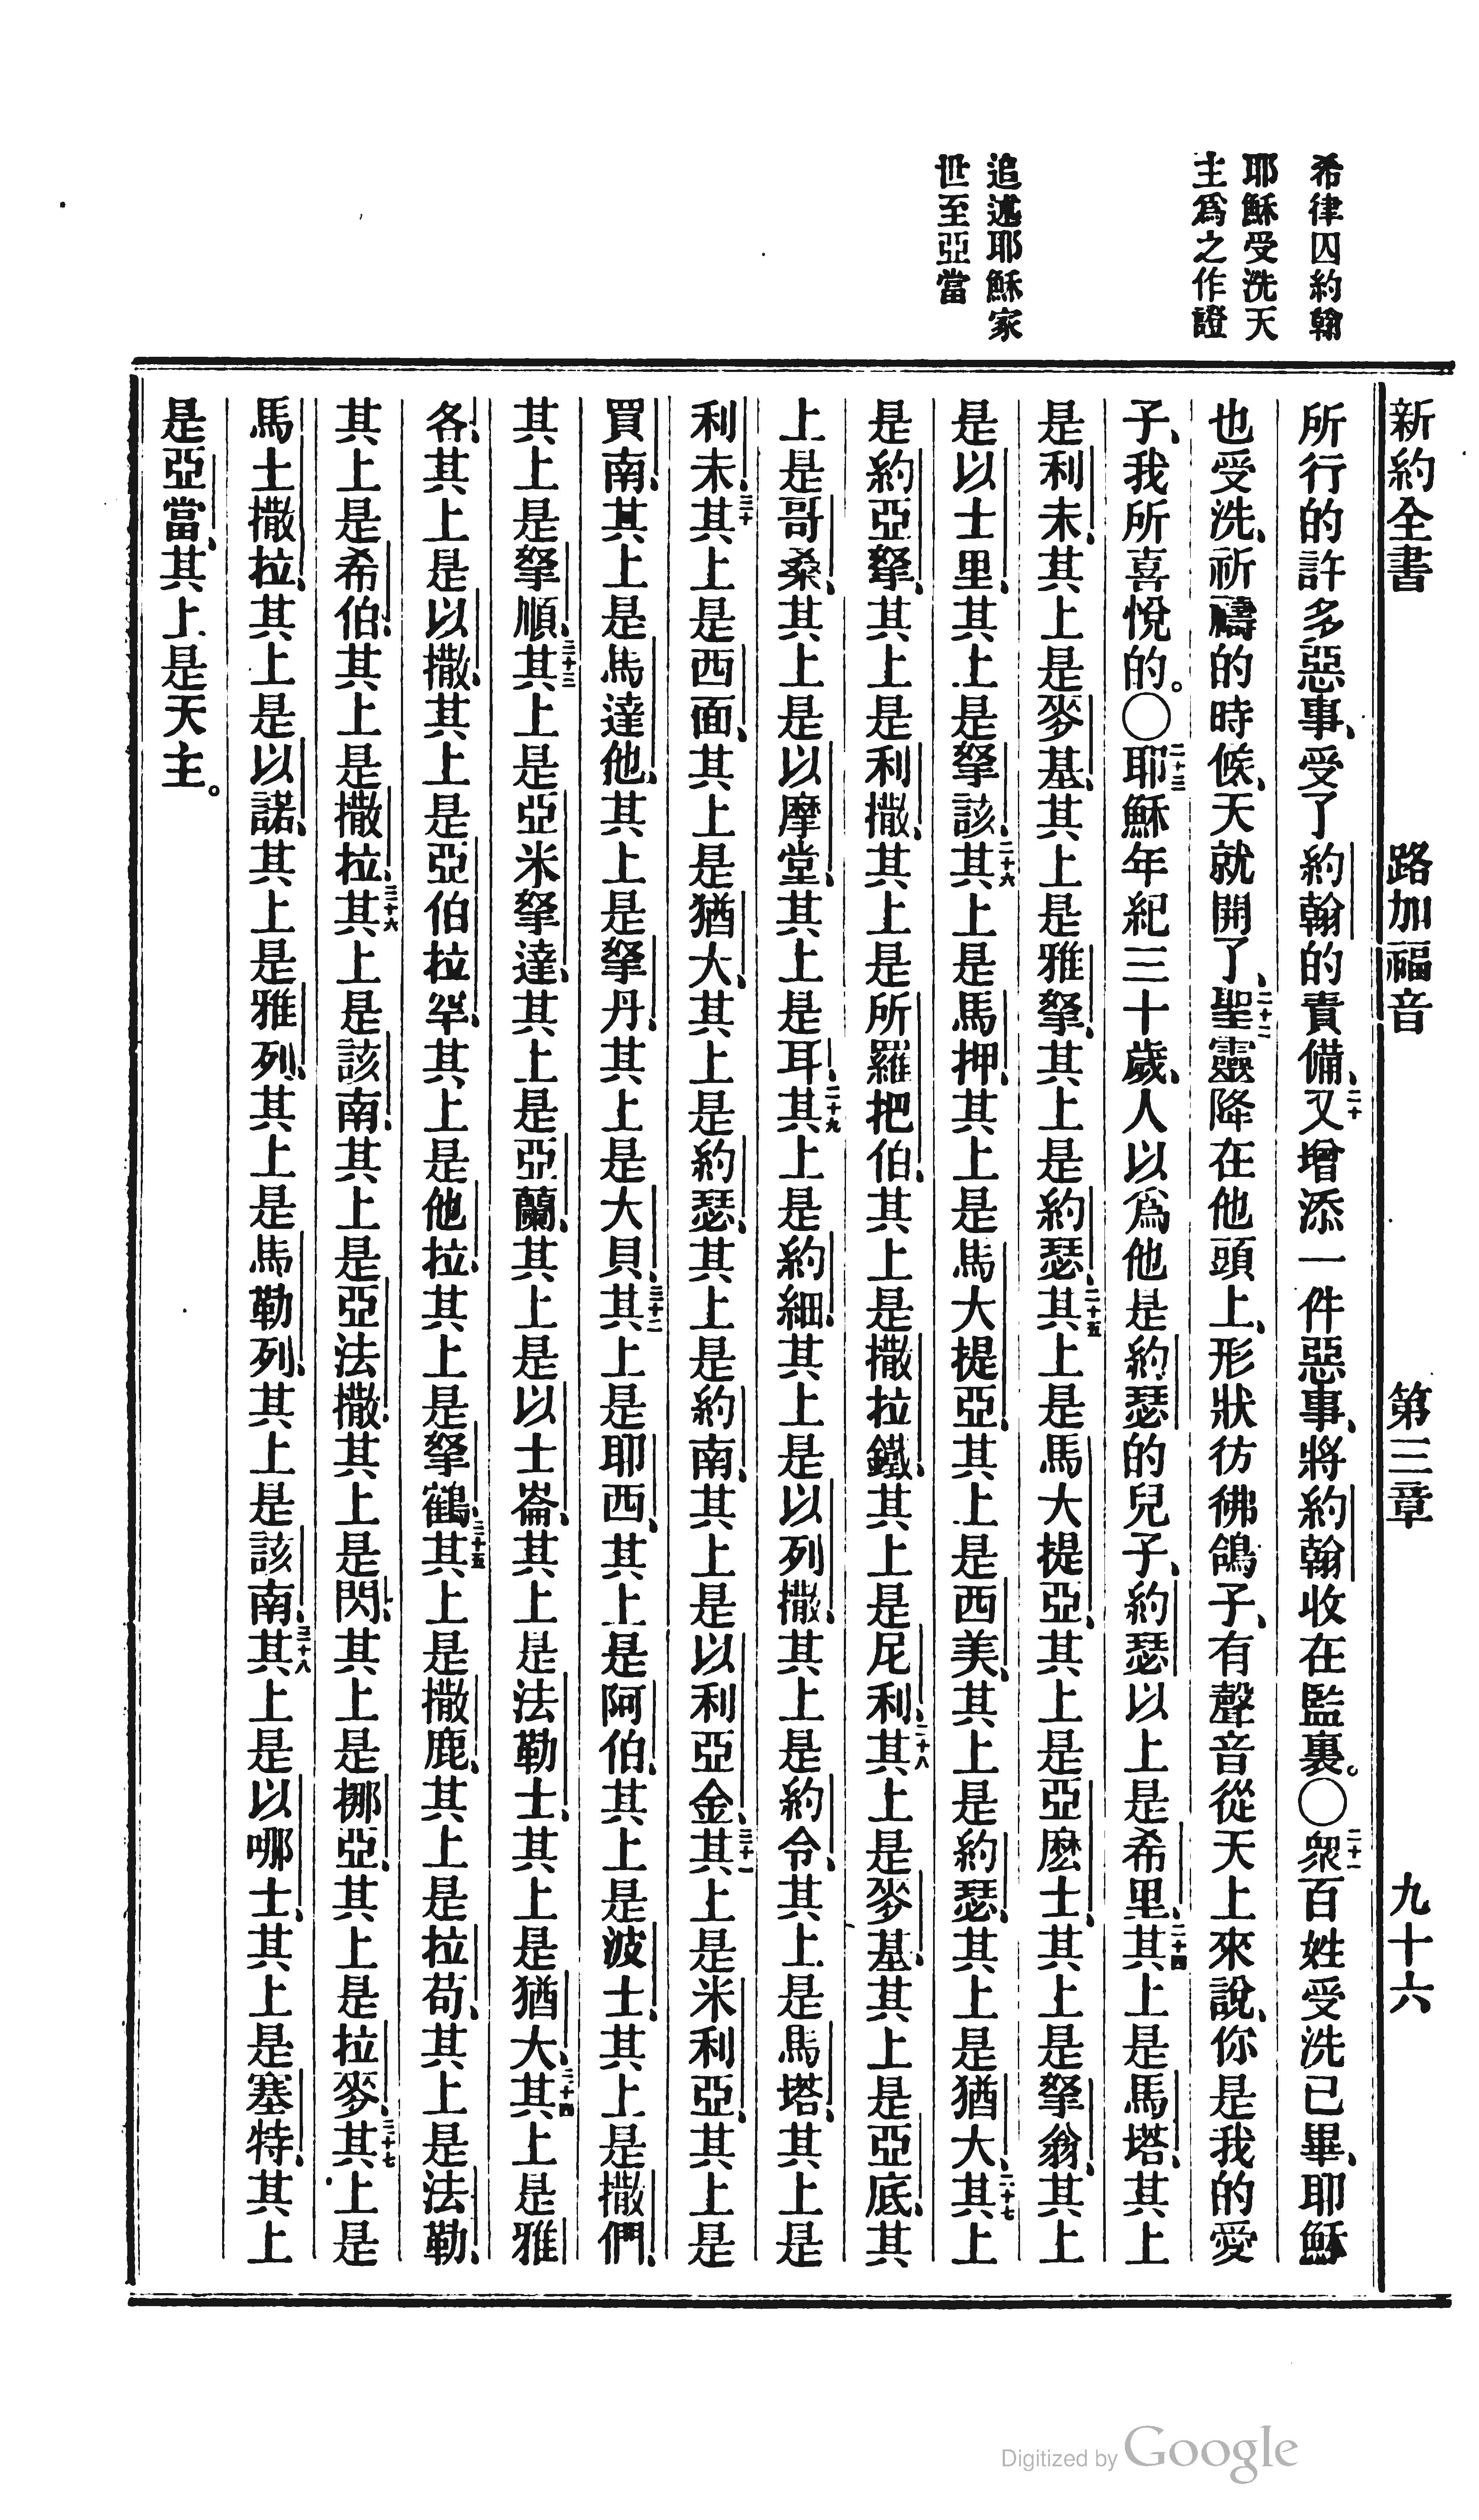 希律囚約翰
耶穌受洗天
主爲之作證
追述耶穌家
世至亞當
新約全書 路加福音 第三章 九十六
所行的許多惡事、受了約翰的責備、二十又增添一件惡事、將約翰收在監裏。〇二十一衆百姓受洗已畢、耶穌
也受洗、祈禱的時候、天就開了、二十二聖靈降在他頭上、形狀彷彿鴿子、有聲音從天上來說、你是我的愛
子、我所喜悅的。〇二十三耶穌年紀三十歲、人以爲他是約瑟的兒子、約瑟以上是希里、二十四其上是馬塔、其上
是利未、其上是麥基、其上是雅拏、其上是約瑟、二十五其上是馬大提亞、其上是亞麽士、其上是拏翁、其上
是以士里、其上是拏該、二十六其上是馬押、其上是馬大提亞、其上是西美、其上是約瑟、其上是猶大、二十七其上
是約亞拏、其上是利撒、其上是所羅把伯、其上是撒拉鐵、其上是尼利、二十八其上是麥基、其上是亞底、其
上是哥桑、其上是以摩堂、其上是耳、二十九其上是約細、其上是以列撒、其上是約令、其上是馬塔、其上是
利未、三十其上是西面、其上是猶大、其上是約瑟、其上是約南、其上是以利亞金、三十一其上是米利亞、其上是
買南、其上是馬達他、其上是拏丹、其上是大貝、三十二其上是耶西、其上是阿伯、其上是波士、其上是撒們、
其上是拏順、三十三其上是亞米拏達、其上是亞蘭、其上是以士崙、其上是法勒士、其上是猶大、三十四其上是雅
各、其上是以撒、其上是亞伯拉罕、其上是他拉、其上是拏鶴、三十五其上是撒鹿、其上是拉苟、其上是法勒、
其上是希伯、其上是撒拉、三十六其上是該南、其上是亞法撒、其上是閃、其上是挪亞、其上是拉麥、三十七其上是
馬土撒拉、其上是以諾、其上是雅列、其上是馬勒列、其上是該南、三十八其上是以哪士、其上是塞特、其上
是亞當、其上是天主。
Digitized by Google